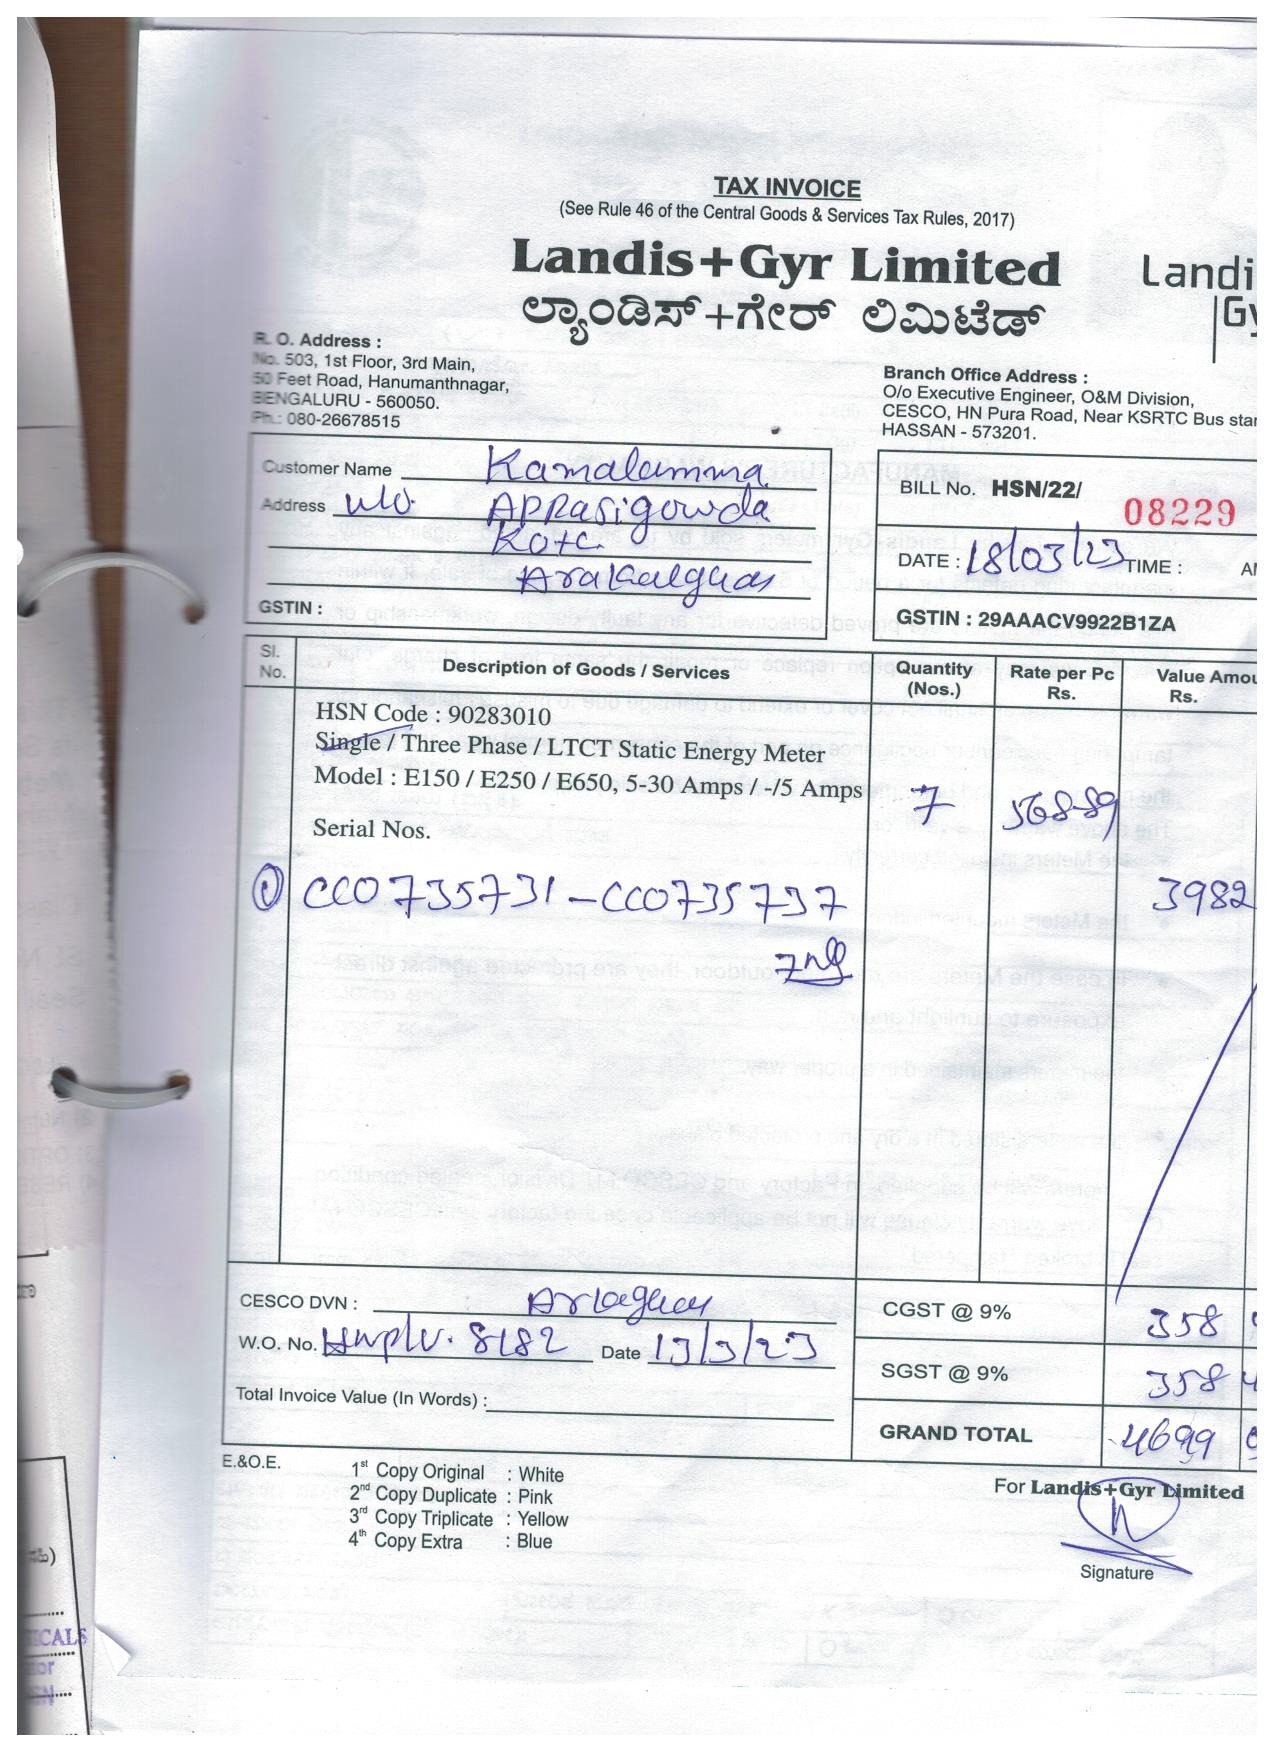 TAX INVOICE
(See Rule 46 of the Central Goods & Services Tax Rules, 2017)
Landis+Gyr Limited
ಲ್ಯಾಂಡಿಸ್+ಗೇರ್ ಲಿಮಿಟೆಡ್
Landi
Gy
R. O. Address :
No. 503, 1st Floor, 3rd Main,
50 Feet Road, Hanumanthnagar,
BENGALURU - 560050.
Ph.: 080-26678515
Branch Office Address :
O/o Executive Engineer, O&M Division,
CESCO, HN Pura Road, Near KSRTC Bus star
HASSAN - 573201.
Customer Name Kamalamma
Address w/o. Apprasigowda
Kote
Arakalguas
GSTIN :
BILL No. HSN/22/ 08229
DATE : 18/03/23 TIME :
GSTIN : 29AAACV9922B1ZA
Sl. No. Description of Goods / Services Quantity (Nos.) Rate per Pc Rs. Value Amou Rs.
HSN Code : 90283010
Single / Three Phase / LTCT Static Energy Meter
Model : E150 / E250 / E650, 5-30 Amps / -/5 Amps 7 568-89
Serial Nos.
① CC0735731 - CC0735737 3982
CESCO DVN :
W.O. No. 8182 Date 13/3/23
Total Invoice Value (In Words) :
CGST @ 9% 358
SGST @ 9% 358 4
GRAND TOTAL 4699
E.&O.E.
1st Copy Original : White
2nd Copy Duplicate : Pink
3rd Copy Triplicate : Yellow
4th Copy Extra : Blue
For Landis+Gyr Limited
Signature